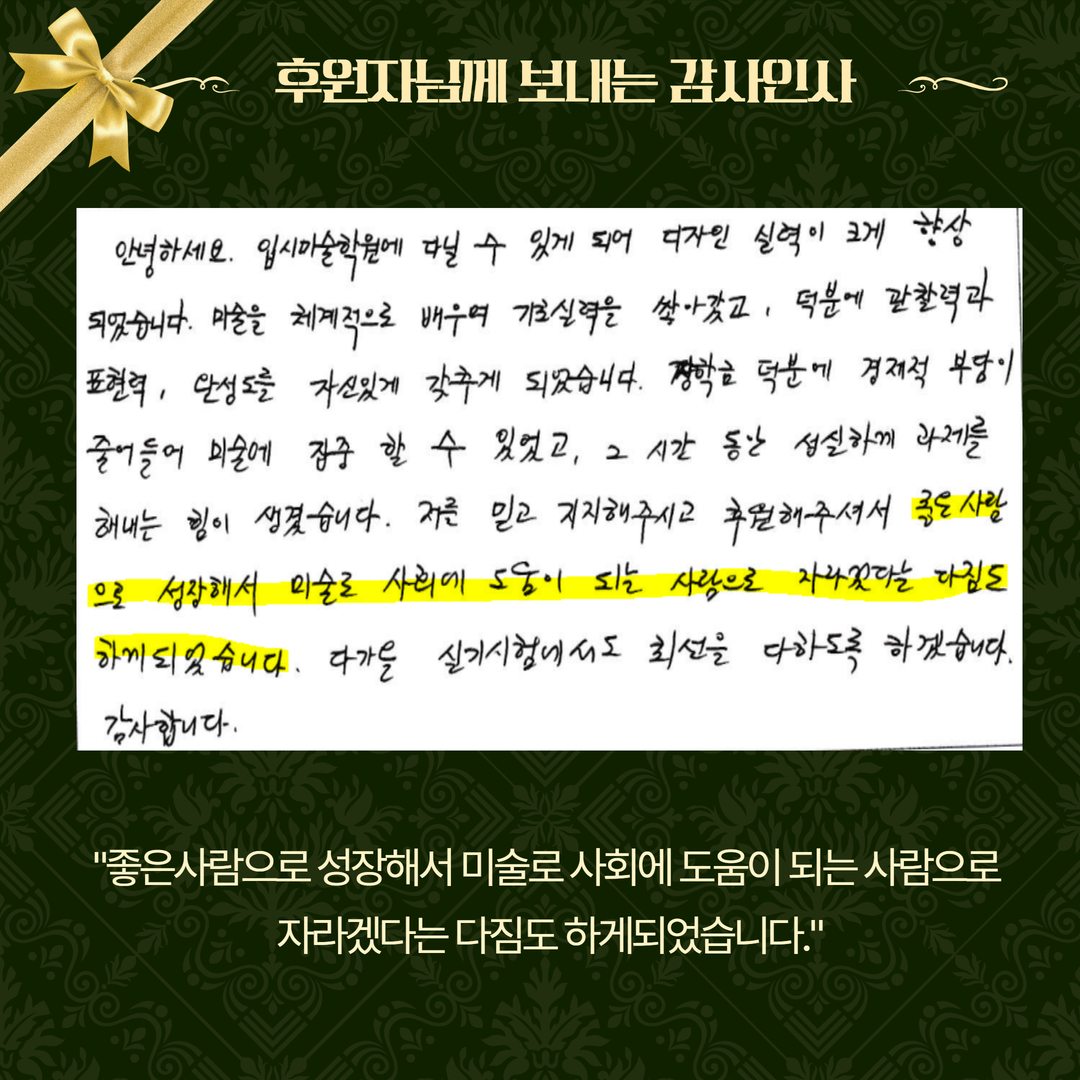 후원자님께 보내는 감사인사
안녕하세요. 입시미술학원에 다닐 수 있게 되어 디자인 실력이 크게 향상
되었습니다. 미술을 체계적으로 배우며 기초실력을 쌓아갔고, 덕분에 관찰력과
표현력, 완성도를 자신있게 갖추게 되었습니다. 장학금 덕분에 경제적 부담이
줄어들어 미술에 집중 할 수 있었고, 그 시간 동안 성실하게 과제를
해내는 힘이 생겼습니다. 저를 믿고 지지해주시고 후원해주셔서 좋은 사람
으로 성장해서 미술로 사회에 도움이 되는 사람으로 자라겠다는 다짐도
하게되었습니다. 다가올 실기시험에서도 최선을 다하도록 하겠습니다.
감사합니다.
"좋은사람으로 성장해서 미술로 사회에 도움이 되는 사람으로
자라겠다는 다짐도 하게되었습니다."